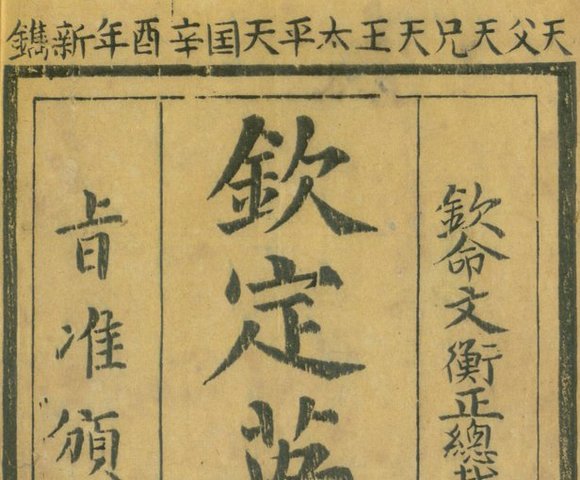 天父天兄天王太平天囯辛酉年新鐫
欽命文衡正總裁
欽定英
旨准頒